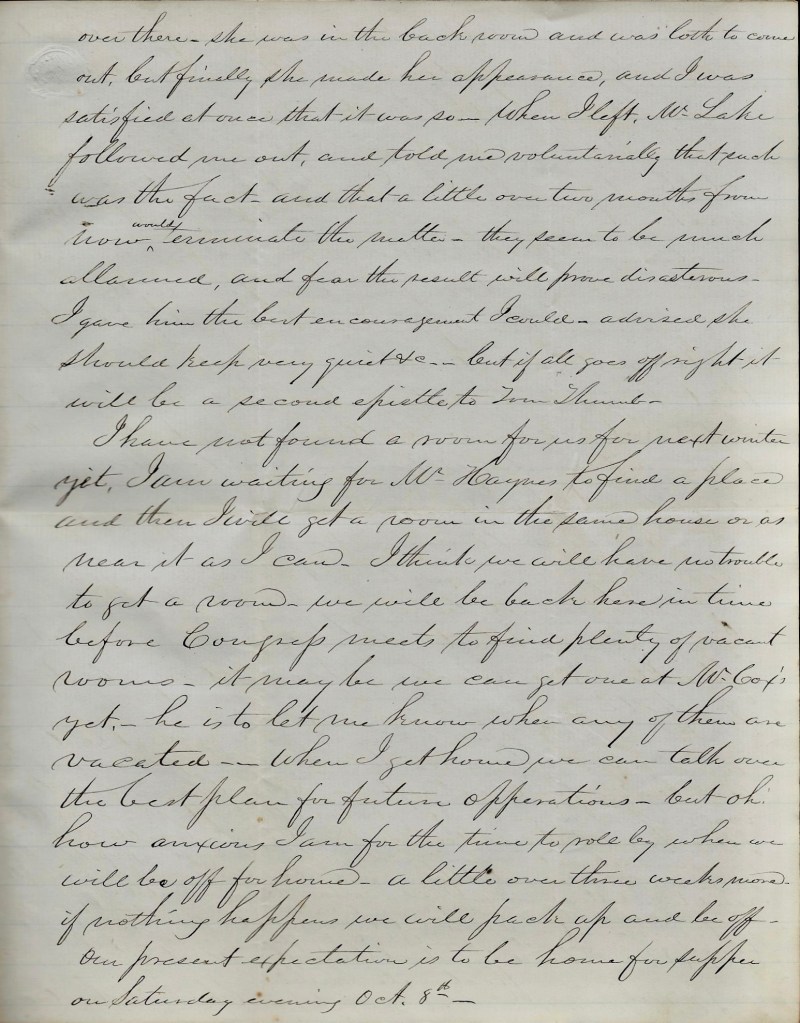 over there - she was in the back room and was loth to come
out, but finally she made her appearance, and I was
satisfied at once that it was so - When I left, Mr Lake
followed me out, and told me voluntarially that such
was the fact - and that a little over two months from
now would terminate the matter - they seem to be much
allarmed, and fear the result will prove disasterous -
I gave him the best encouragement I could - advised she
should keep very quiet &c - - but if all goes off right it
will be a second epistle to Tom Thumb -
I have not found a room for us for next winter
yet, I am waiting for Mr Haynes to find a place
and then I will get a room in the same house or as
near it as I can - I think we will have no trouble
to get a room - we will be back here in time
before Congress meets to find plenty of vacant
rooms - it may be we can get one at Mr Cox's
yet, - he is to let me know when any of them are
vacated - - When I get home we can talk over
the best plan for future opperations - but oh!
how anxious I am for the time to roll by when we
will be off for home - a little over three weeks more -
if nothing happens we will pack up and be off -
Our present expectation is to be home for supper
on Saturday evening Oct. 8th -